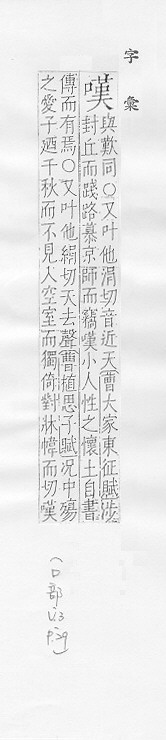 字彙
嘆
與歎同〇又叶他涓切音近天曹大家東征賦涉
封丘而踐路慕京師而竊嘆小人性之懷土自書
傳而有焉〇又叶他絹切天去聲曹植思子賦況中殤
之愛子廼千秋而不見入空室而獨倚對牀幃而切嘆
(口部
P.29)